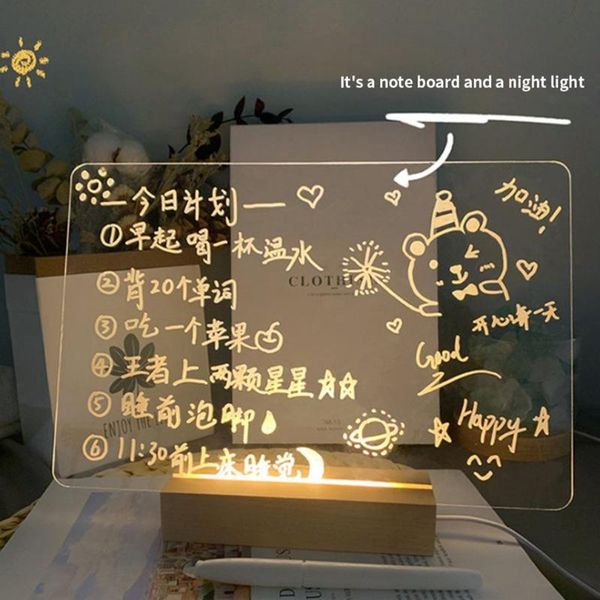 It's a note board and a night light
—今日计划—
①早起喝一杯温水
②背20个单词
③吃一个苹果
④王者上两颗星星
⑤睡前泡脚
⑥11:30前上床睡觉
加油!
开心每一天
Good
Happy
CLOTH
ENJOY THE